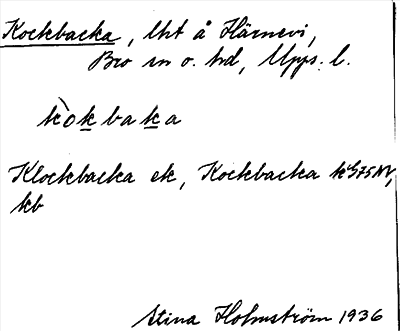 Kockbacka, lht å Härnevi,
Bro sn o. hd, Upps. l.
kòkbaka
Klockbacka ek, Kockbacka
kb
Stina Holmström 1936